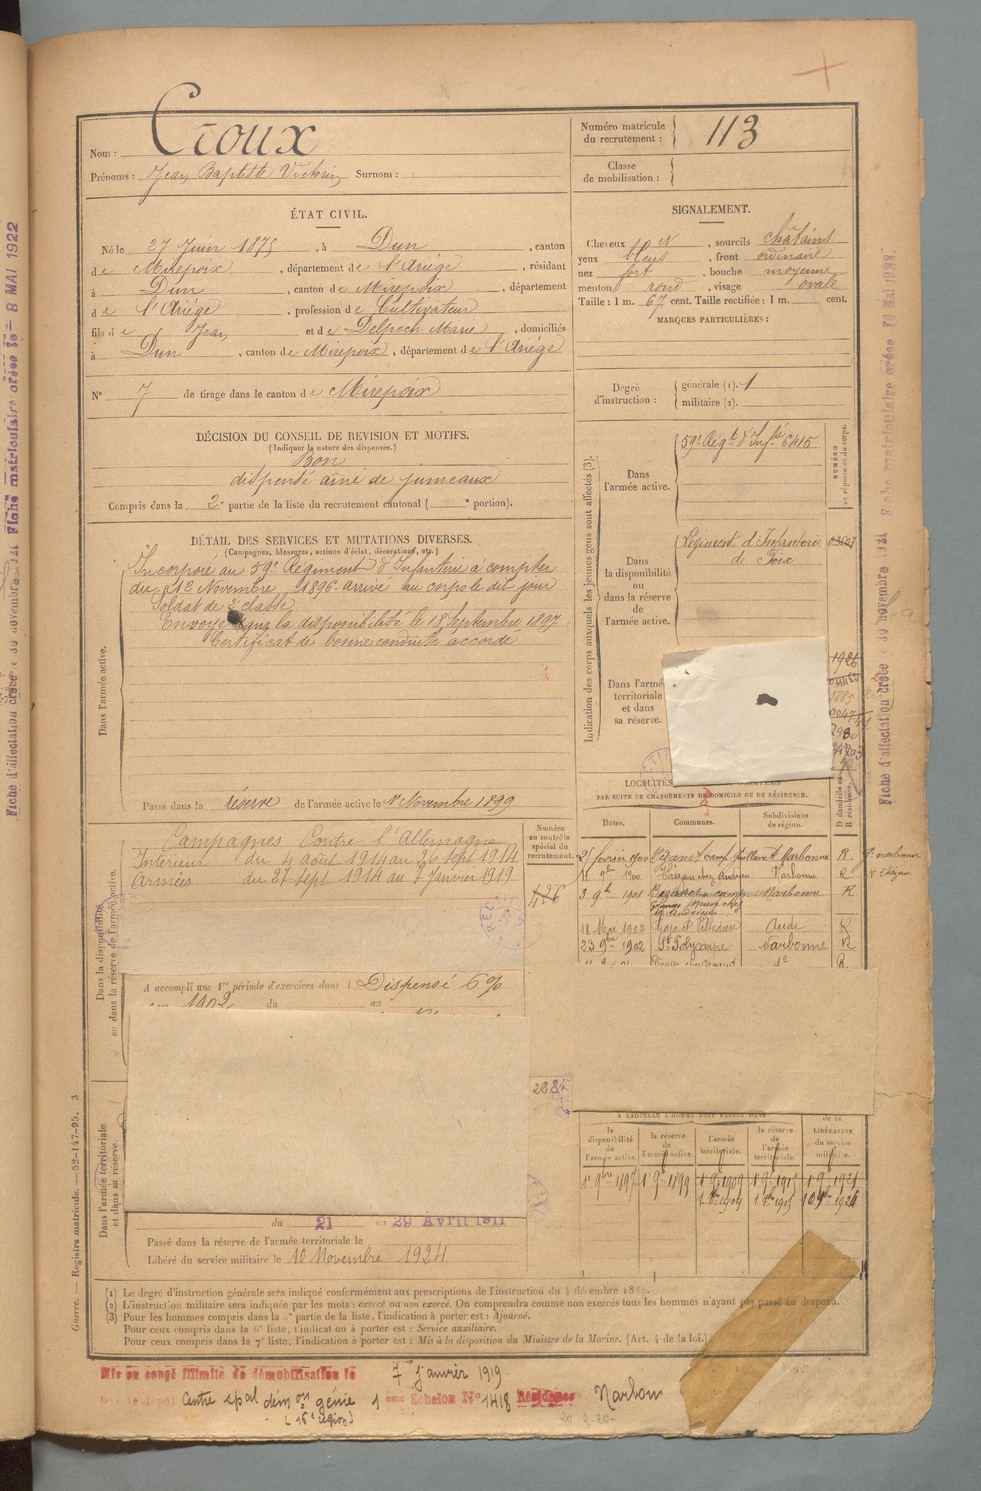 Nom : Croux
Prénoms : Jean Baptiste Victorin Surnom :
Numéro matricule du recrutement : 113
Classe de mobilisation :
ÉTAT CIVIL.
Né le 27 Juin 1875, à Dun, canton
de Mirepoix, département de l'Ariége, résidant
à Dun, canton de Mirepoix, département
de l'Ariége, profession de Cultivateur
fils de Jean et de Delpech Marie, domiciliés
à Dun, canton de Mirepoix, département de l'Ariége
N° 7 de tirage dans le canton de Mirepoix
SIGNALEMENT.
Cheveux et, sourcils châtains
yeux bleus, front ordinaire
nez fort, bouche moyenne
menton rond, visage ovale
Taille : 1 m. 67 cent. Taille rectifiée : 1 m. cent.
MARQUES PARTICULIÈRES :
Degré d'instruction : générale (1). 1
militaire (2).
DÉCISION DU CONSEIL DE REVISION ET MOTIFS.
(Indiquer la nature des dispenses.)
Bon
dispensé ainé de jumeaux
Compris dans la 2e partie de la liste du recrutement cantonal ( e portion).
DÉTAIL DES SERVICES ET MUTATIONS DIVERSES.
(Campagnes, blessures, actions d'éclat, décorations, etc.)
Dans l'armée active.
Incorporé au 59e Régiment d'Infanterie à compter
du 1er Novembre 1896. arrivé au corps le dit jour
Soldat de 2e classe
Envoyé dans la disponibilité le 18 Septembre 1897
Certificat de bonne conduite accordé
Passé dans la réserve de l'armée active le 1er Novembre 1899
Indication des corps auxquels les jeunes gens sont affectés (3).
NUMÉRO au répertoire du corps.
Dans l'armée active.
59e Régt d'Infie 6415
Dans la disponibilité ou dans la réserve de l'armée active.
Régiment d'Infanterie
de Foix
Dans l'armée territoriale et dans sa réserve.
1926
LOCALITÉS
PAR SUITE DE CHANGEMENTS DE DOMICILE OU DE RÉSIDENCE.
Dates. Communes. Subdivisions de région. D domicile ou R résidence.
Narbonne R.
Narbonne R
3 9bre 1901 Narbonne R
18 Mai 1902 Aude R
23 9bre 1902 St Polycarpe Narbonne R
Dans la disponibilité ou dans la réserve de l'armée active.
Numéro au contrôle spécial du recrutement.
Campagnes Contre l'Allemagne
Intérieur du 4 août 1914 au 26 Sept 1914
Armées du 27 Sept 1914 au 7 Janvier 1919
426
A accompli une 1re période d'exercices dans l Dispensé 6%
1902 du au
Dans l'armée territoriale et dans sa réserve.
du 21 au 29 Avril 1911
Passé dans la réserve de l'armée territoriale le
Libéré du service militaire le 10 Novembre 1924
A LAQUELLE L'HOMME DOIT PASSER DANS
la disponibilité de l'armée active. la réserve de l'armée active. l'armée territoriale. la réserve de l'armée territoriale. de la LIBÉRATION du service militaire.
1er 9bre 1897 1er 9bre 1899 1er 9bre 1909 1er 9bre 1915 1er 9bre 1921
(1) Le degré d'instruction générale sera indiqué conformément aux prescriptions de l'instruction du 4 décembre 1889.
(2) L'instruction militaire sera indiquée par les mots : exercé ou non exercé. On comprendra comme non exercés tous les hommes n'ayant pas passé au drapeau.
(3) Pour les hommes compris dans la 5e partie de la liste, l'indication à porter est : Ajourné.
Pour ceux compris dans la 6e liste, l'indication à porter est : Service auxiliaire.
Pour ceux compris dans la 7e liste, l'indication à porter est : Mis à la disposition du Ministre de la Marine. (Art. 4 de la loi.)
Guerre. — Registre matricule. — 52-147-95. 3
Mis en congé illimité de démobilisation le 7 janvier 1919
dépôt Centre spal démon génie 1 ème Echelon N° 1418 Résidence Narbonne
(16e région)
20-2-20-
Fiche matriculaire créée le 8 MAI 1922
Fiche d'affectation créée le 30 novembre 1921
Fiche matriculaire créée 10 Mai 1922.
Fiche d'affectation créée le 30 novembre 1921